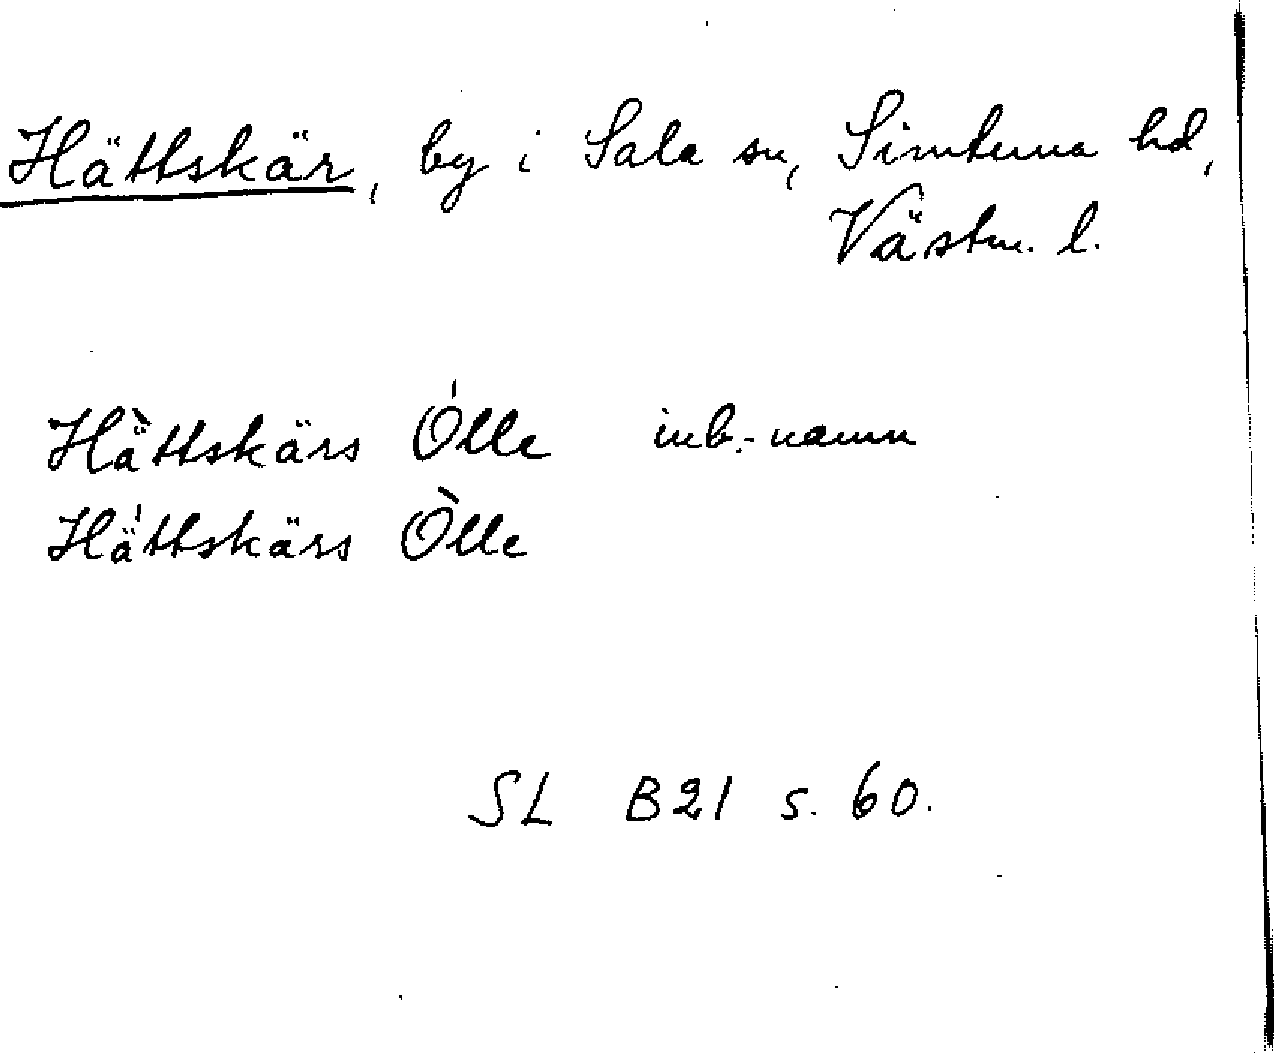 Hättskär, by i Sala sn, Simtuna hd,
Västm. l.
Hä̀ttskärs Ólle inb.-namn
Hä́ttskärs Òlle
SL B21 s. 60.